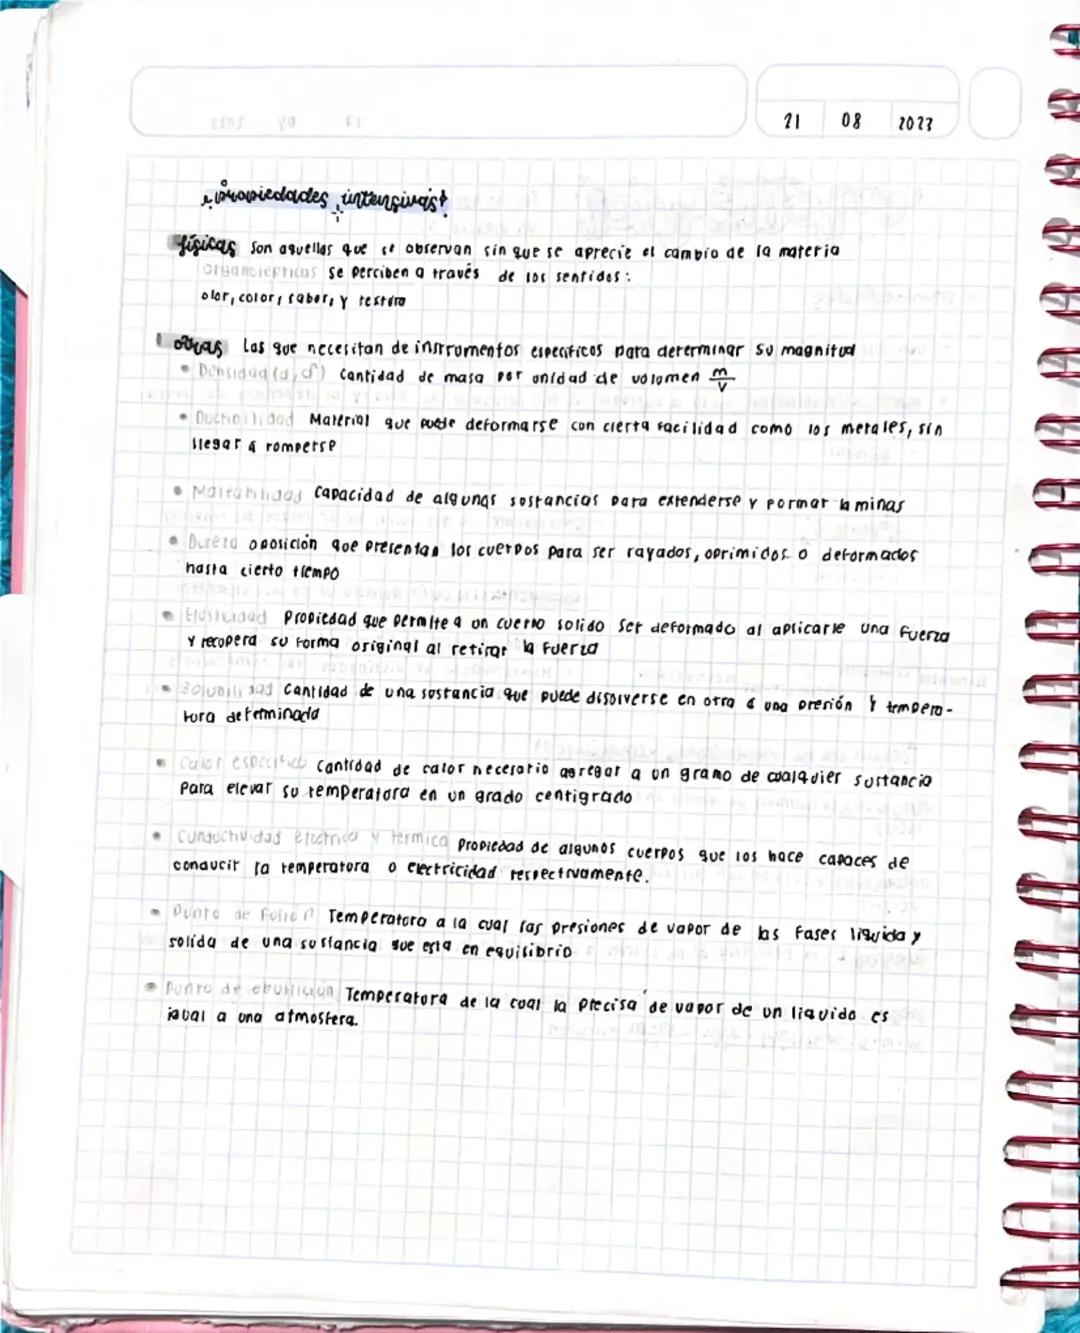 21 08 2023
propiedades intensivas
físicas son aquellas que se observan sin que se aprecie el cambio de la materia
Organolepticas se perciben a través de los sentidos:
olor, color, sabor, y textura
otras Las que necesitan de instrumentos especificos para determinar su magnitud
• Densidad (d, δ) cantidad de masa por unidad de volumen m/v
• Ductibilidad Material que puede deformarse con cierta facilidad como los metales, sin
llegar a romperse
• Maleabilidad Capacidad de algunas sustancias para extenderse y formar laminas
• Dureza oposición que presentan los cuerpos para ser rayados, oprimidos o deformados
hasta cierto tiempo
• Elasticidad Propiedad que permite a un cuerpo solido ser deformado al aplicarle una fuerza
y recopera su forma original al retirar la fuerza
• Solubilidad Cantidad de una sustancia que puede disolverse en otra a una presión y tempera-
tura determinada
• Calor especifico cantidad de calor necesario agregar a un gramo de cualquier sustancia
Para elevar su temperatura en un grado centigrado
• Conductividad electrica y termica Propiedad de algunos cuerpos que los hace capaces de
conducir la temperatura o electricidad respectivamente.
• Punto de fusion Temperatura a la cual las presiones de vapor de las fases liquida y
solida de una sustancia que esta en equilibrio
• Punto de ebullición Temperatura de la cual la precisa de vapor de un liquido es
igual a una atmosfera.